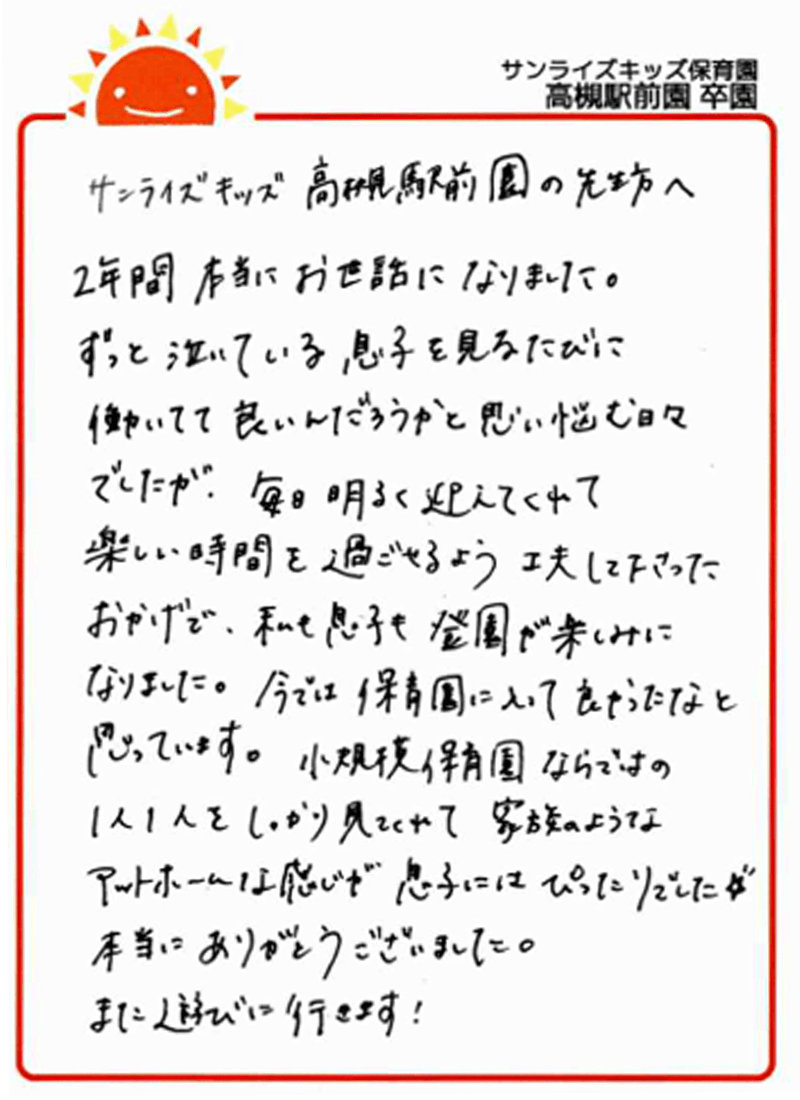 サンライズキッズ保育園
高槻駅前園 卒園
サンライズキッズ 高槻駅前園の先生方へ
2年間 本当に お世話に なりました。
ずっと 泣いている 息子を見るたびに
働いてて 良いんだろうかと 思い悩む日々
でしたが、毎日 明るく 迎えてくれて
楽しい時間を 過ごせるよう 工夫して下さった
おかげで、私も 息子も 登園が楽しみに
なりました。今では 保育園に入って 良かったなと
思っています。小規模保育園 ならではの
1人1人を しっかり 見てくれて 家族のような
アットホームな感じが 息子には ぴったりでした
本当に ありがとうございました。
また 遊びに 行きます!